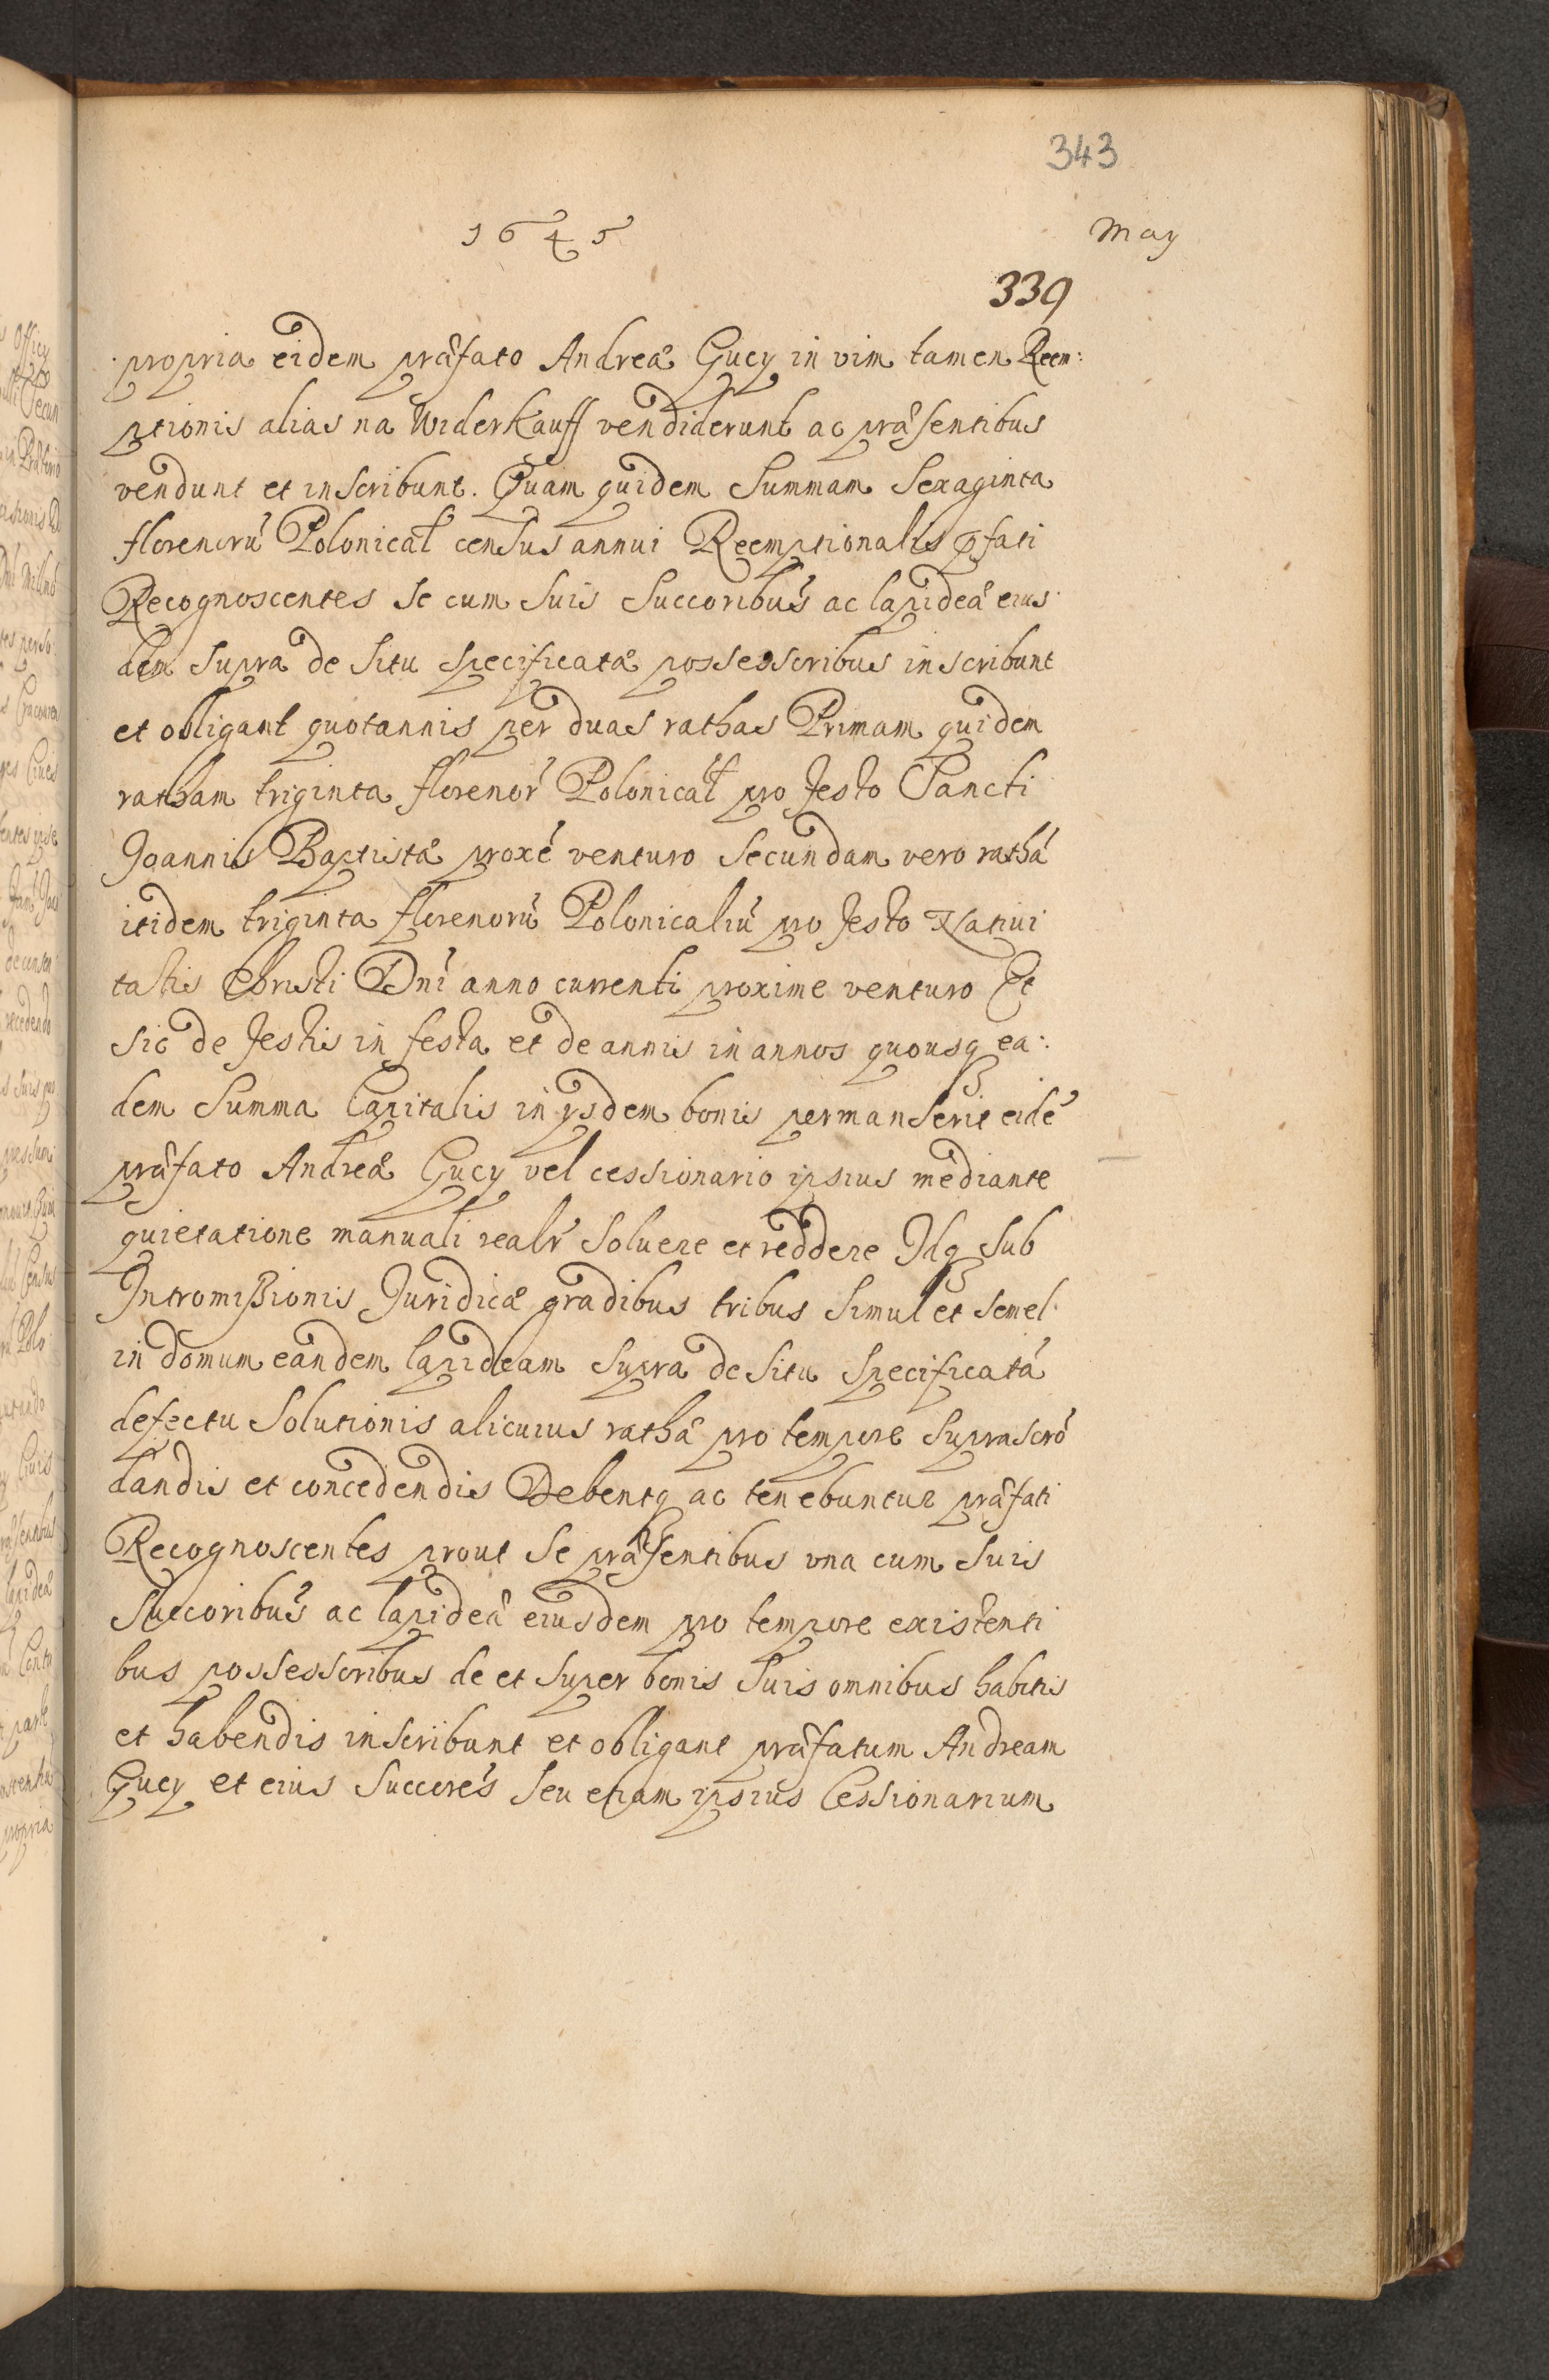 343
1645 May
339
propria eidem præfato Andreæ Gucy in vim tamen Reem:
ptionis alias na Widerkauff vendiderunt ac præsentibus
vendunt et inscribunt. Quam quidem Summam Sexaginta
florenorū Polonical census annui Reemptionalis pfati
Recognoscentes se cum suis Succoribus ac lapideæ eius
dem supra de situ specificatæ possessoribus inscribunt
et obligant quotannis per duas rathas Primam quidem
ratham triginta florenor Polonical pro festo Sancti
Joannis Baptistæ proxē venturo Secundam vero rathā
itidem triginta florenorū Polonicaliū pro festo Natiui
tatis Christi Dni anno currenti proxime venturo Et
sic de festis in festa et de annis in annos quousq ea:
dem Summa Capitalis in ysdem bonis permanserit eidē
præfato Andreæ Gucy vel cessionario ipsius mediante
quietatione manuali realr soluere et reddere Idq sub
Intromißionis Juridicæ gradibus tribus simul et semel
in domum eandem lapideam supra de situ specificatā
defectu solutionis alicuius rathæ pro tempore suprascrō
dandis et concedendis Debentq ac tenebuntur præfati
Recognoscentes prout se præsentibus vna cum suis
Succoribus ac lapideæ eiusdem pro tempore existenti
bus possessoribus de et super bonis suis omnibus habitis
et habendis inscribunt et obligant præfatum Andream
Gucy et eius Succores seu etiam ipsius Cessionarium